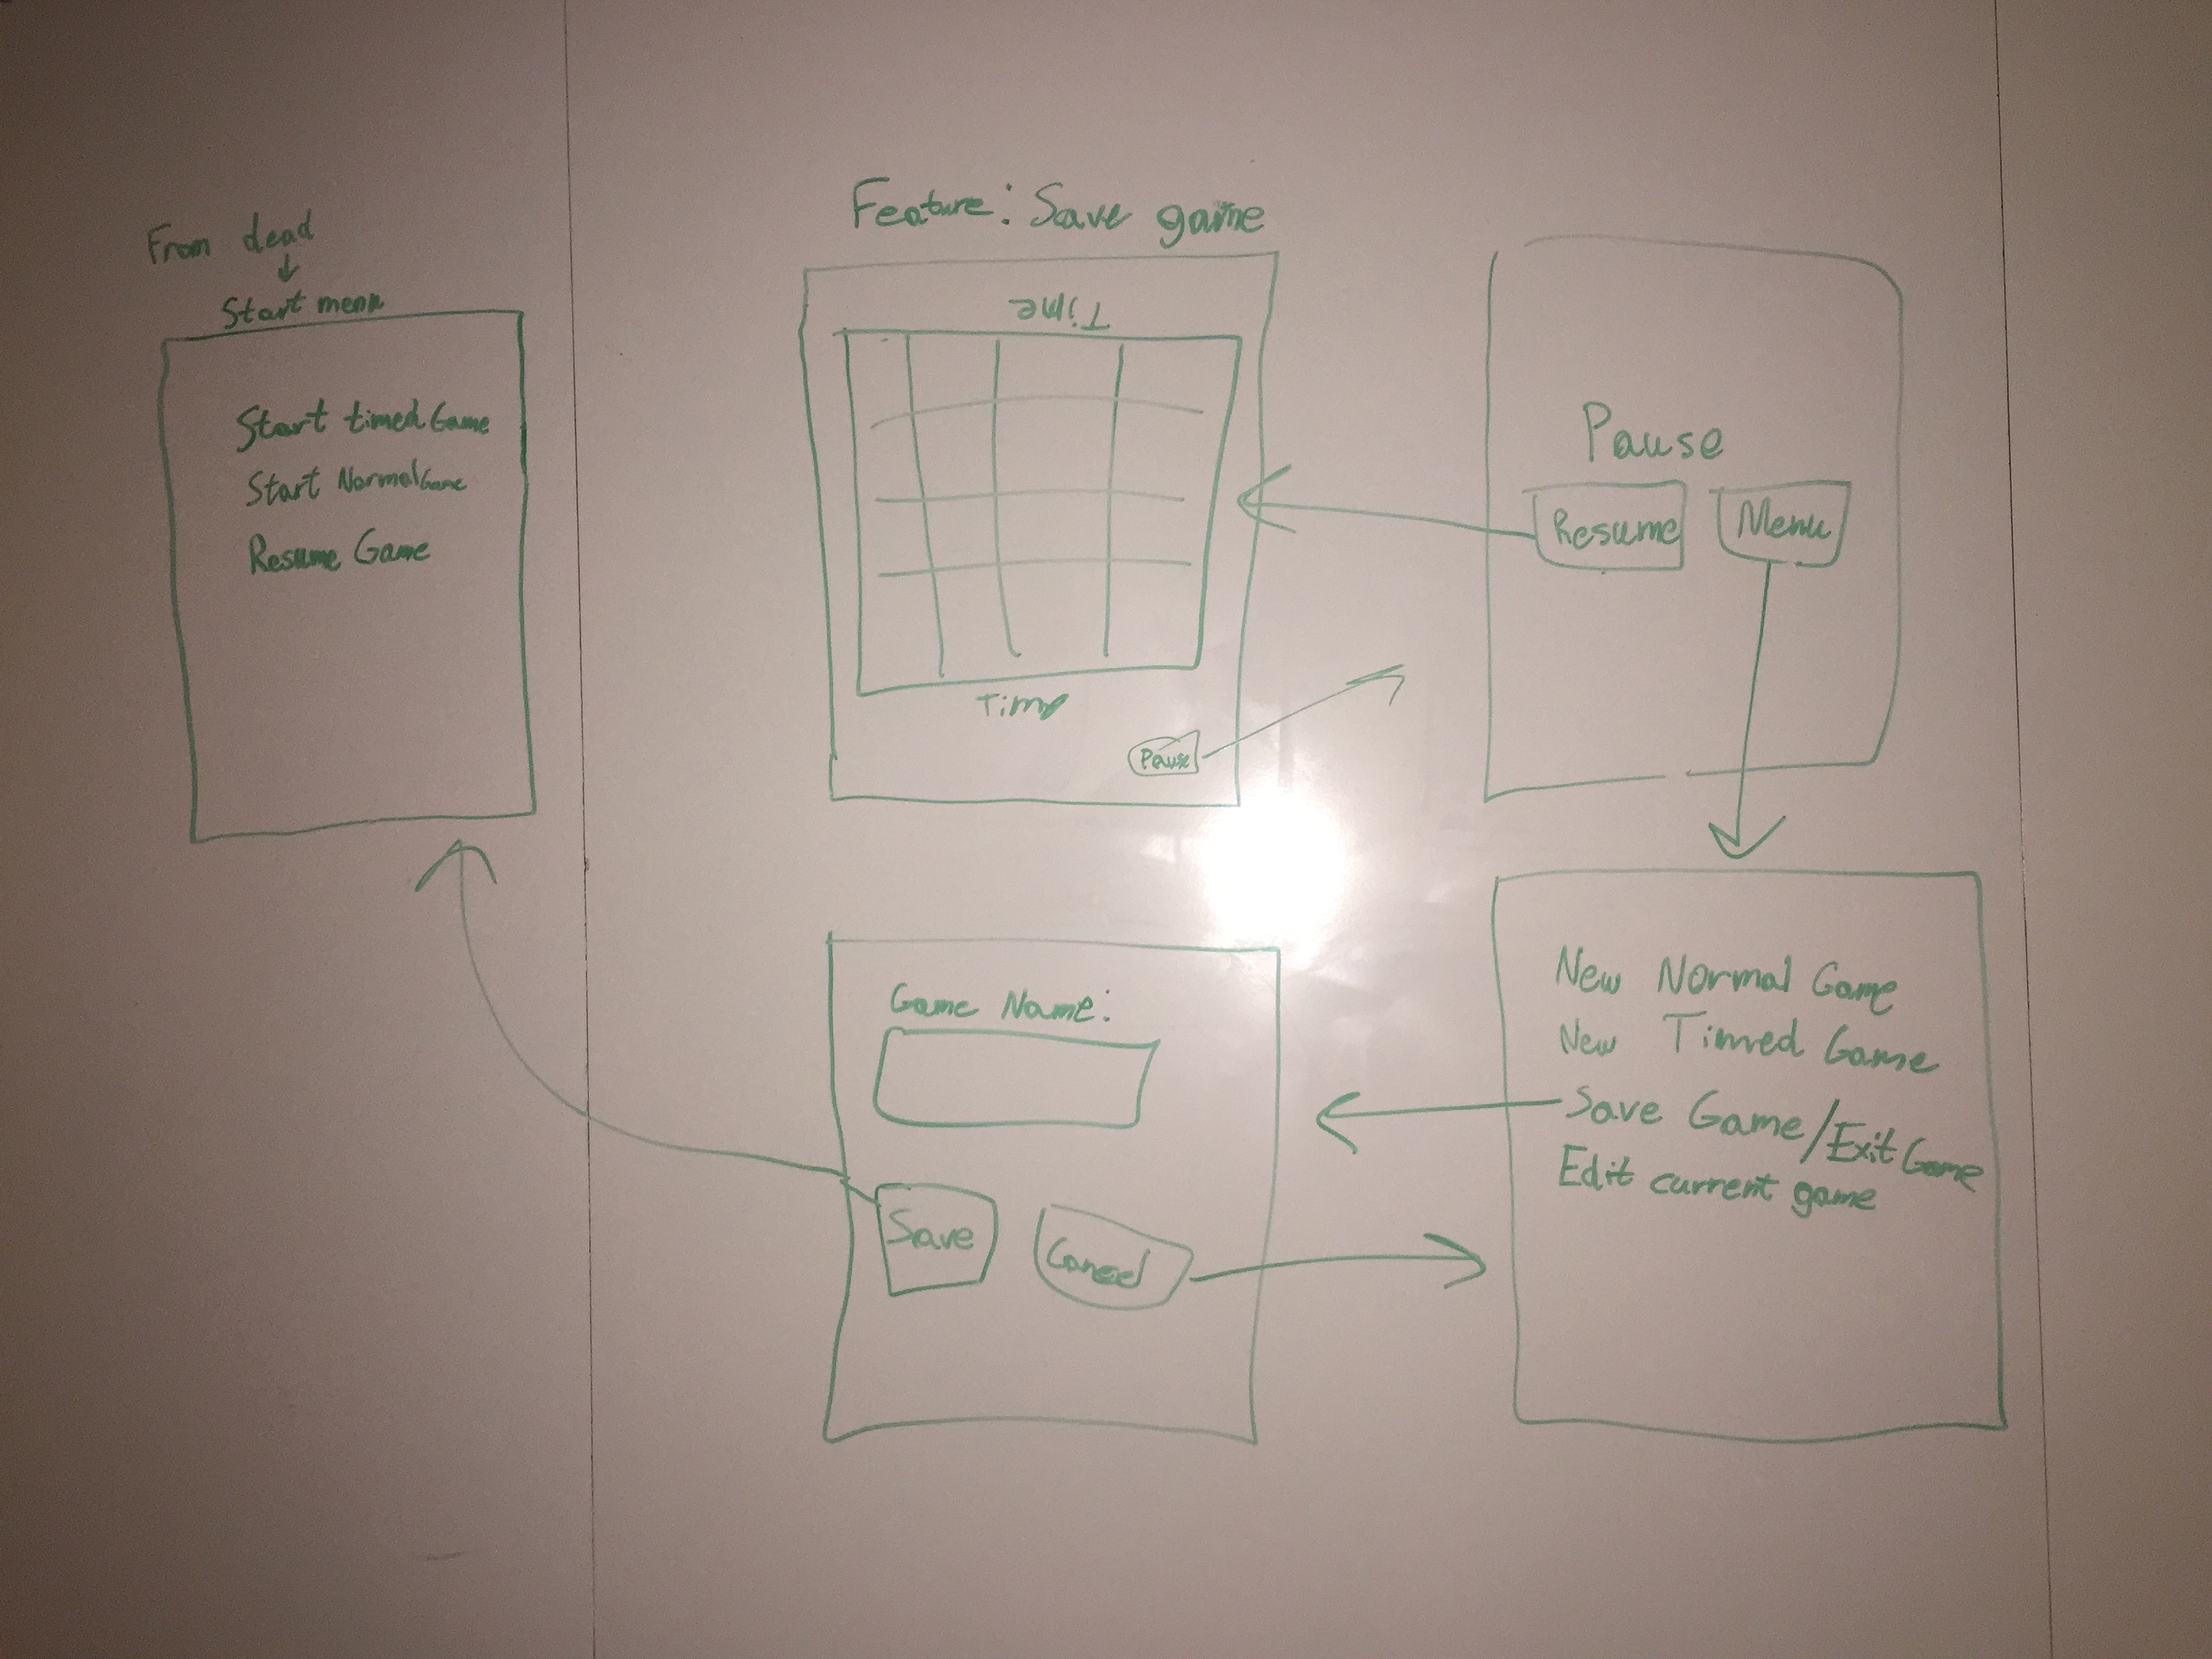 From dead
Start menu
Start timed Game
Start Normal Game
Resume Game
Feature: Save game
Time
Time
Pause
Pause
Resume
Menu
New Normal Game
New Timed Game
Save Game/Exit Game
Edit current game
Game Name:
Save
Cancel